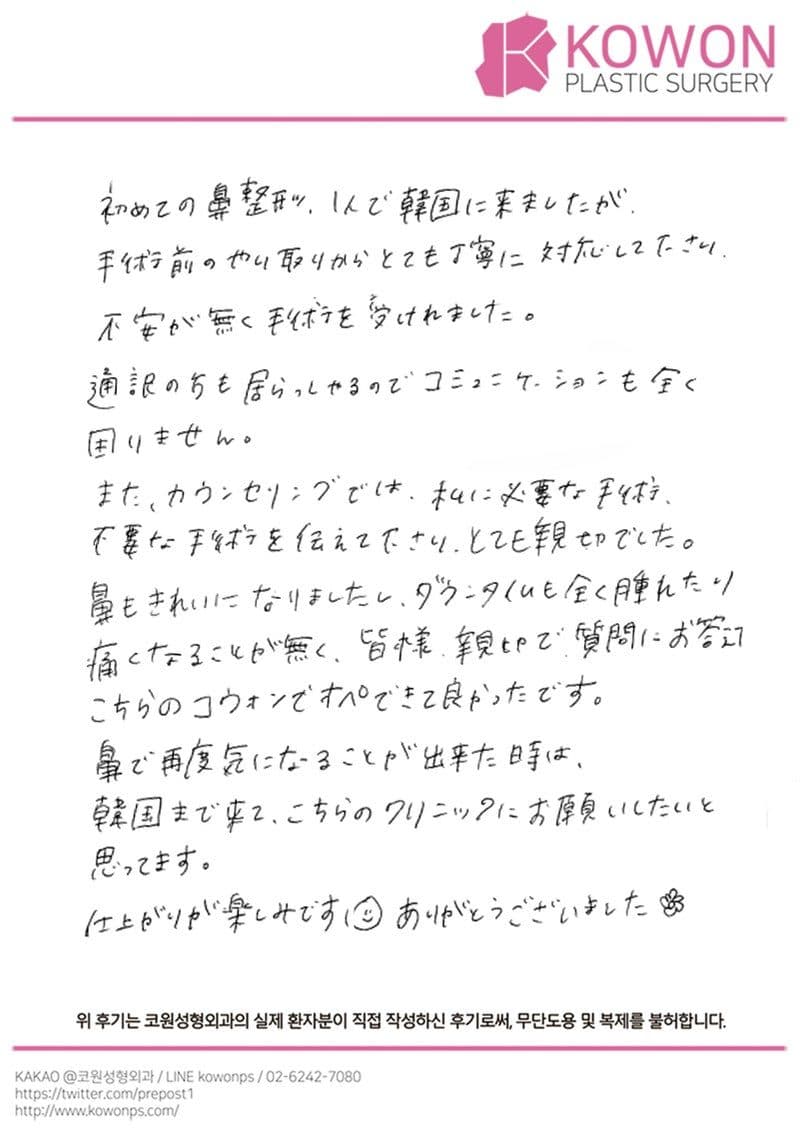 KOWON
PLASTIC SURGERY
初めての鼻整形、1人で韓国に来ましたが、
手術前のやり取りからとても丁寧に対応して下さり、
不安が無く手術を受けれました。
通訳の方も居らっしゃるのでコミュニケーションも全く
困りません。
また、カウンセリングでは、私に必要な手術、
不要な手術を伝えて下さり、とても親切でした。
鼻もきれいになりましたし、ダウンタイムも全く腫れたり
痛くなることが無く、皆様、親切で、質問にお答え
こちらのコウォンでオペできて良かったです。
鼻で再度気になることが出来た時は、
韓国まで来て、こちらのクリニックにお願いしたいと
思ってます。
仕上がりが楽しみです ありがとうございました
위 후기는 코원성형외과의 실제 환자분이 직접 작성하신 후기로써, 무단도용 및 복제를 불허합니다.
KAKAO @코원성형외과 / LINE kowonps / 02-6242-7080
https://twitter.com/prepost1
http://www.kowonps.com/